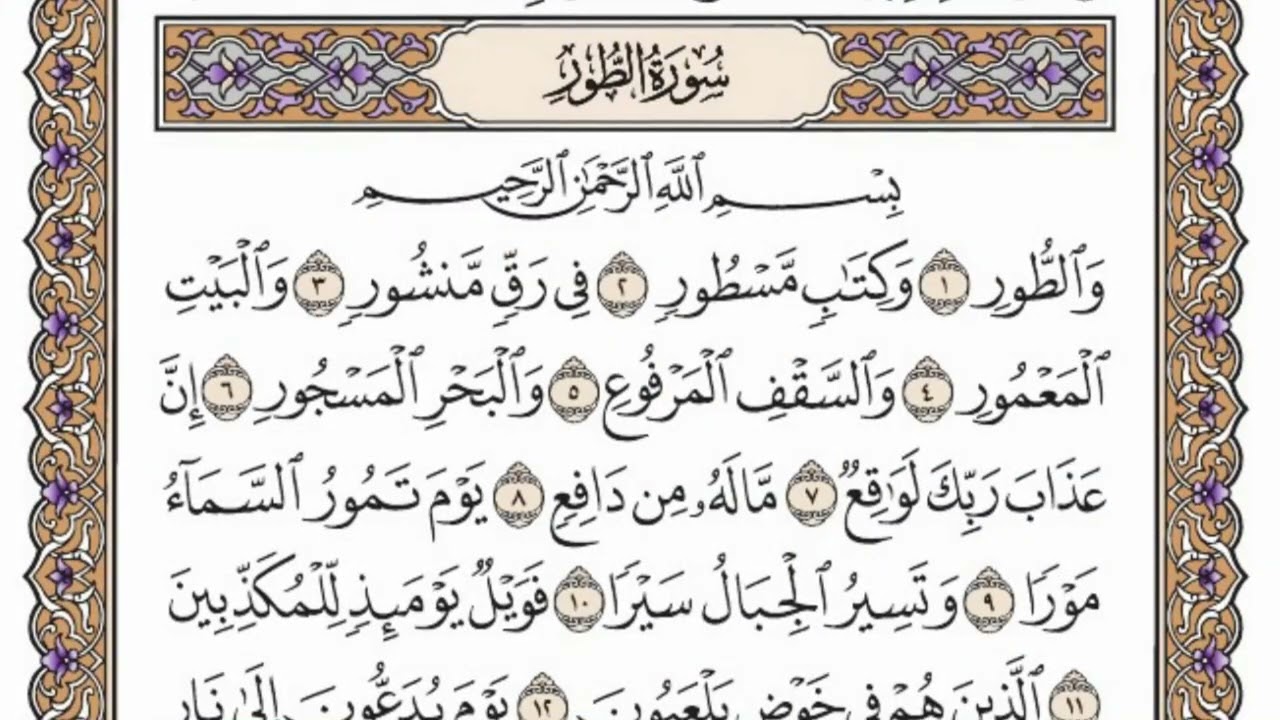 سُورَةُ الطُّورِ
بِسْمِ ٱللَّهِ ٱلرَّحْمَٰنِ ٱلرَّحِيمِ
وَٱلطُّورِ ١ وَكِتَٰبٍ مَّسْطُورٍ ٢ فِى رَقٍّ مَّنشُورٍ ٣ وَٱلْبَيْتِ
ٱلْمَعْمُورِ ٤ وَٱلسَّقْفِ ٱلْمَرْفُوعِ ٥ وَٱلْبَحْرِ ٱلْمَسْجُورِ ٦ إِنَّ
عَذَابَ رَبِّكَ لَوَٰقِعٌ ٧ مَّا لَهُۥ مِن دَافِعٍ ٨ يَوْمَ تَمُورُ ٱلسَّمَآءُ
مَوْرًا ٩ وَتَسِيرُ ٱلْجِبَالُ سَيْرًا ١٠ فَوَيْلٌ يَوْمَئِذٍ لِّلْمُكَذِّبِينَ
١١ ٱلَّذِينَ هُمْ فِى خَوْضٍ يَلْعَبُونَ ١٢ يَوْمَ يُدَعُّونَ إِلَىٰ نَارِ